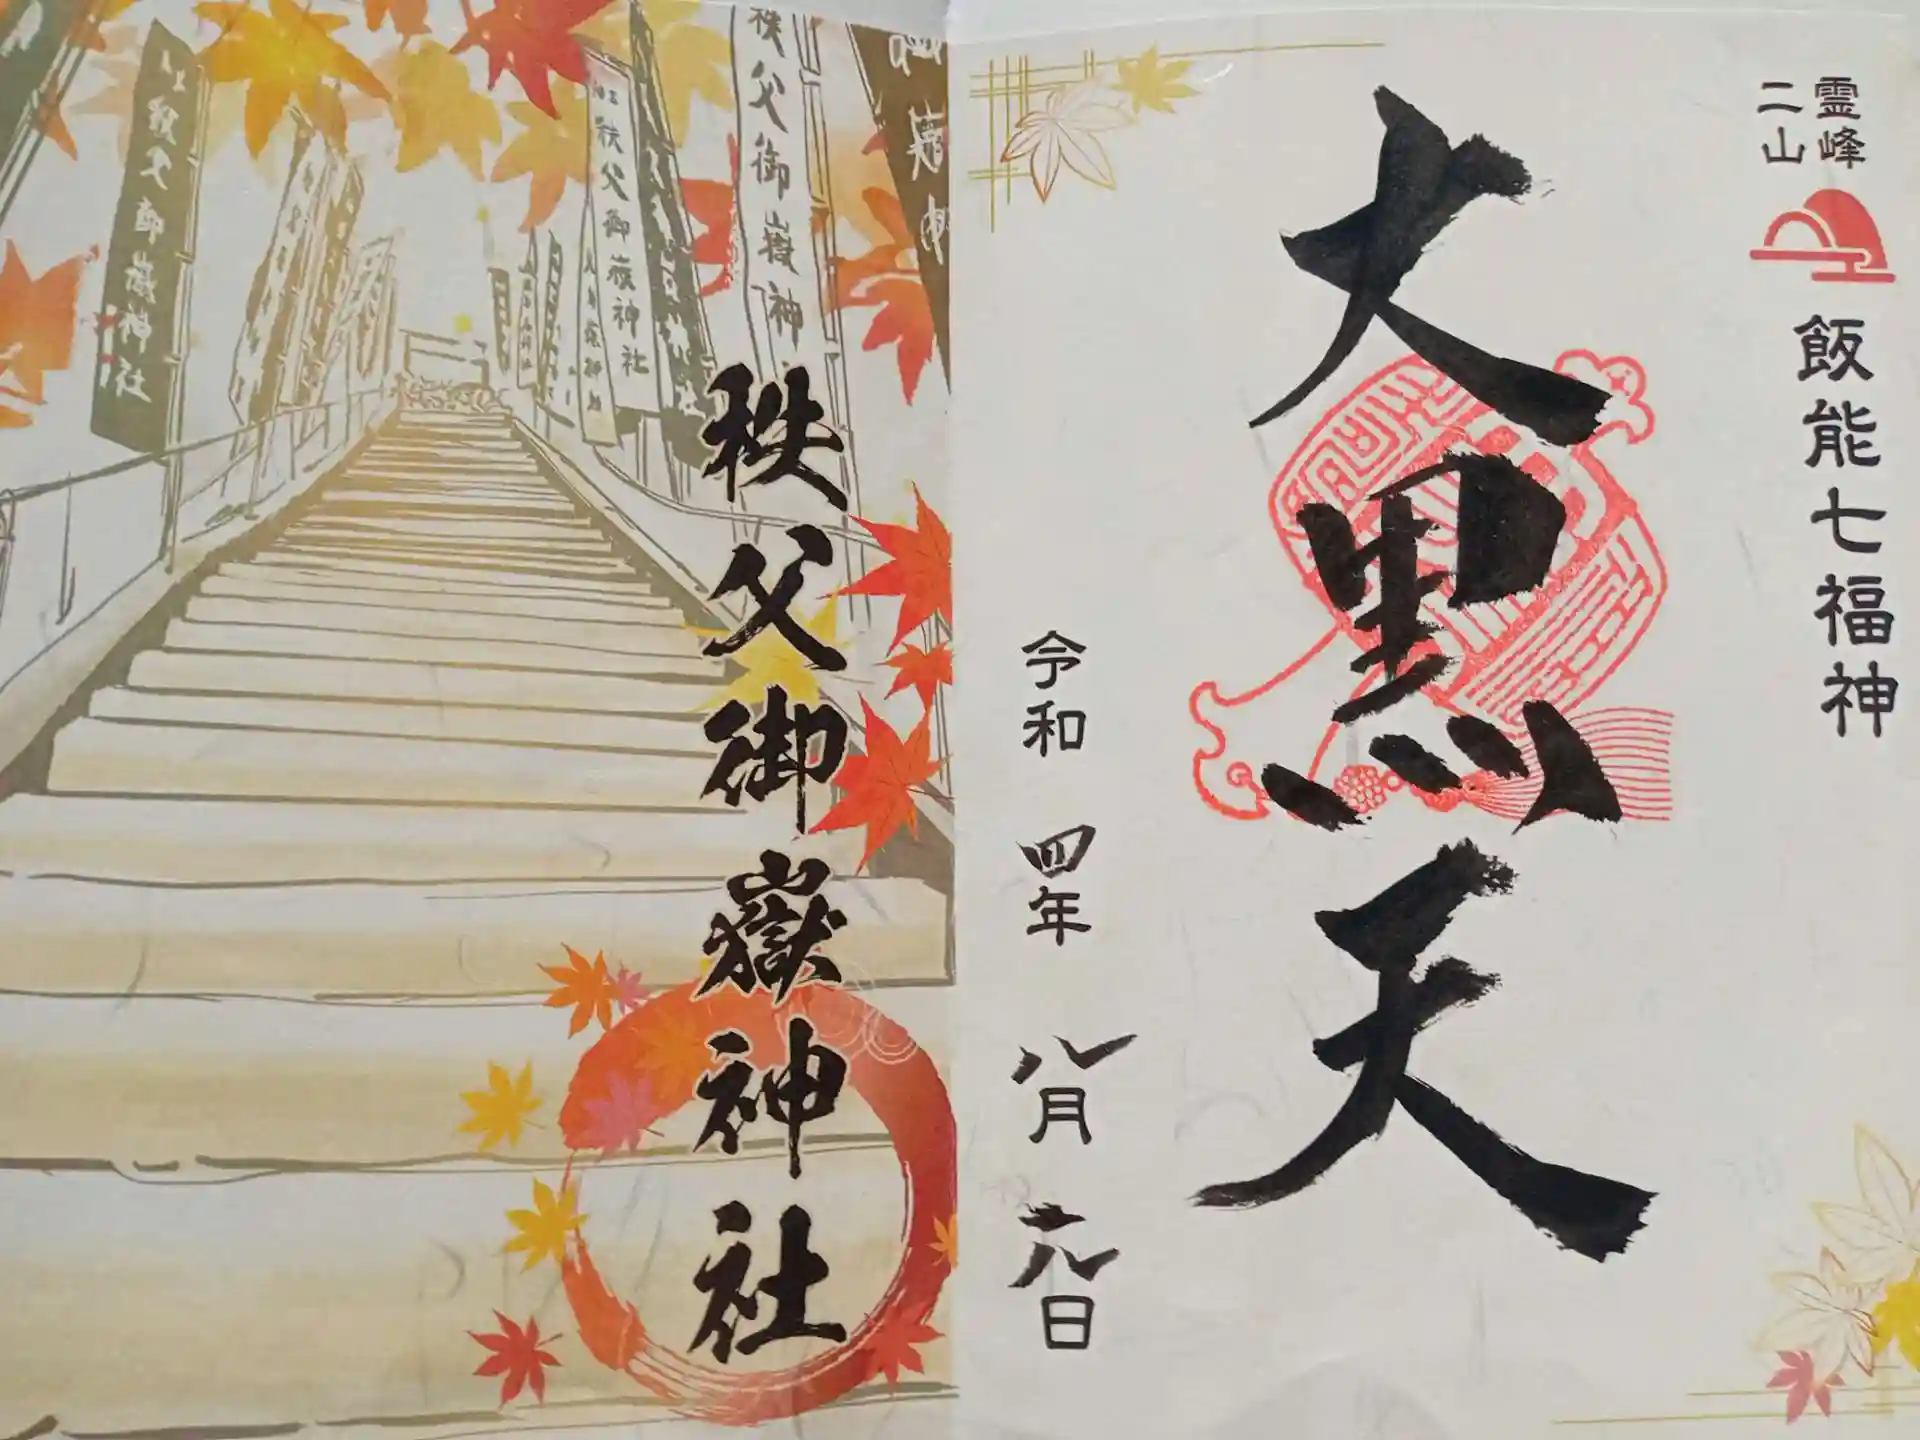 霊峰
二山
飯能七福神
大黒天
令和 四年 八月 日
秩父御嶽神社
秩父御嶽神
秩父御嶽神社
秩父御嶽神社